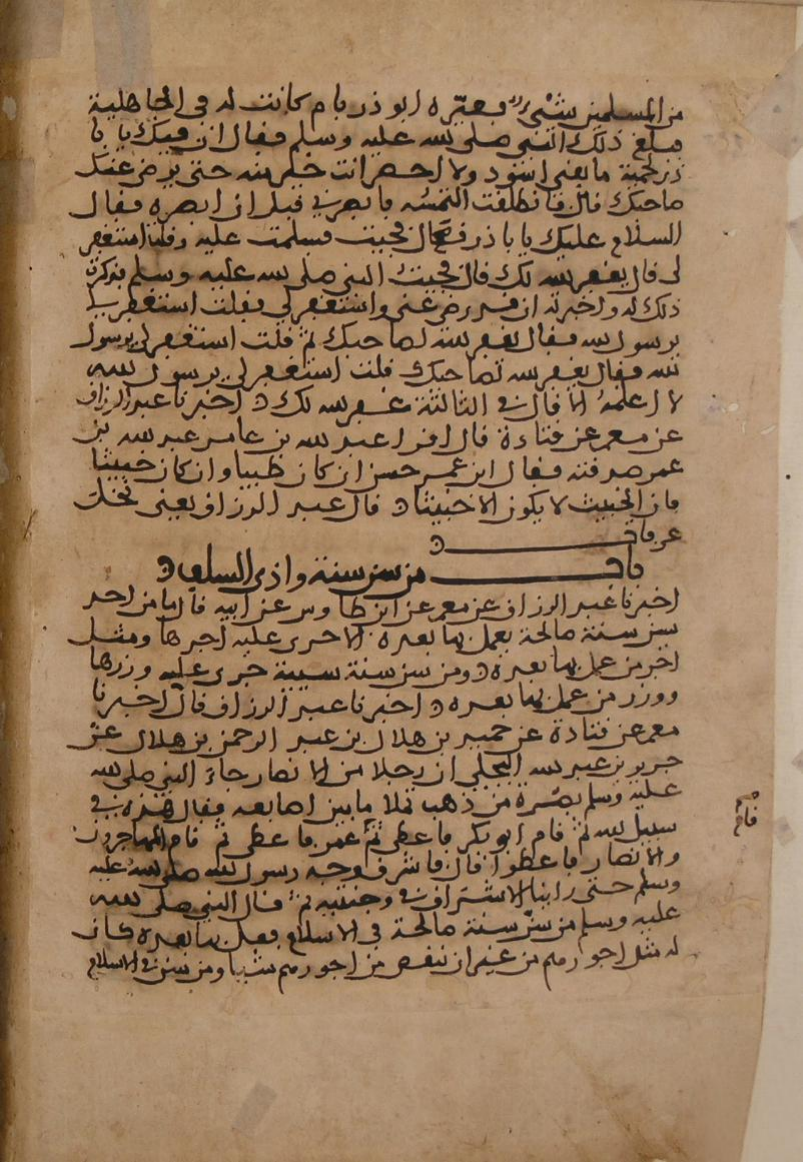 من المسلمين شيء فعيّره ابو ذر بام كانت له في الجاهلية
فبلغ ذلك النبي صلى الله عليه وسلم فقال ان فيك يا با
ذر لحمية ما يعني اسود ولا احمر انت خير منه حتى يرضى عنك
صاحبك قال فانطلقت التمسه فابصرني قبل ان ابصره فقال
السلام عليك يا با ذر قال فجيت فسلمت عليه وقلت استغفر
لي قال يغفر الله لك قال فجيت النبي صلى الله عليه وسلم فذكرت
ذلك له واخبرته ان قد رضي عني واستغفر لي فقلت استغفر لي
يرسول الله فقال يغفر الله لصاحبك ثم قلت استغفر لي يرسول
الله فقال يغفر الله لصاحبك قلت استغفر لي يرسول الله
لا اعلمه الا قال في الثالثة غفر الله لك اخبرنا عبد الرزاق
عن معمر عن قتادة قال افرا عبد الله بن عامر عبد الله بن
عمر صدقته فقال ابن عمر حسن ان كان طيبا وان كان خبيثا
فان الخبيث لا يكون الا خبيثا قال عبد الرزاق يعني نخل
عرفات
باب من سن سنة واذى السلف
اخبرنا عبد الرزاق عن معمر عن ابن طاوس عن ابيه قال ما من احد
سن سنة صالحة يعمل بها بعده الا جرى عليه اجرها ومثل
اجر من عمل بها بعده ومن سن سنة سيية جرى عليه وزرها
ووزر من عمل بها بعده اخبرنا عبد الرزاق قال اخبرنا
معمر عن قتادة عن حميد بن هلال بن عبد الرحمن بن هلال عن
جرير بن عبد الله البجلي ان رجلا من الانصار جاء النبي صلى الله
عليه وسلم بصُرة من ذهب تملا ما بين اصابعه فقال هذه في
سبيل الله ثم قام ابو بكر فاعطى ثم عمر فاعطى ثم قام المهاجرون
والانصار فاعطوا قال فاشرق وجه رسول الله صلى الله عليه
وسلم حتى راينا الاشراق في وجنتيه ثم قال النبي صلى الله
عليه وسلم من سنّ سنة صالحة في الاسلام فعمل بها بعده كان
له مثل اجورهم من غير ان ينقص من اجورهم شيا ومن سن في الاسلام
قام